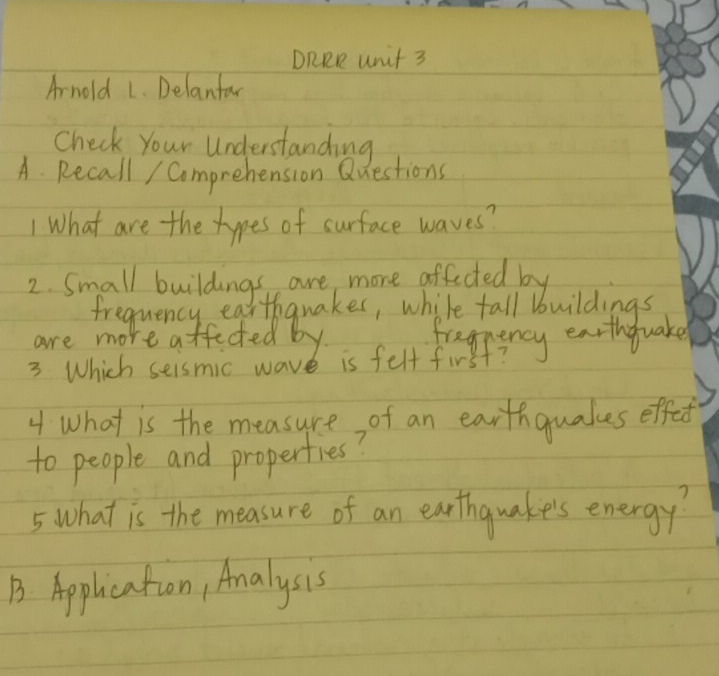 DRRR unit 3
Arnold L. Delantar
Check Your Understanding
A. Recall / Comprehension Questions
1 What are the types of surface waves?
2. Small buildings are more affected by
frequency earthquakes, while tall buildings
are more affected by. freqnency earthquake
3 Which seismic wave is felt first?
4 What is the measure of an earthquakes effect
to people and properties?
5 What is the measure of an earthquake's energy?
B. Application, Analysis